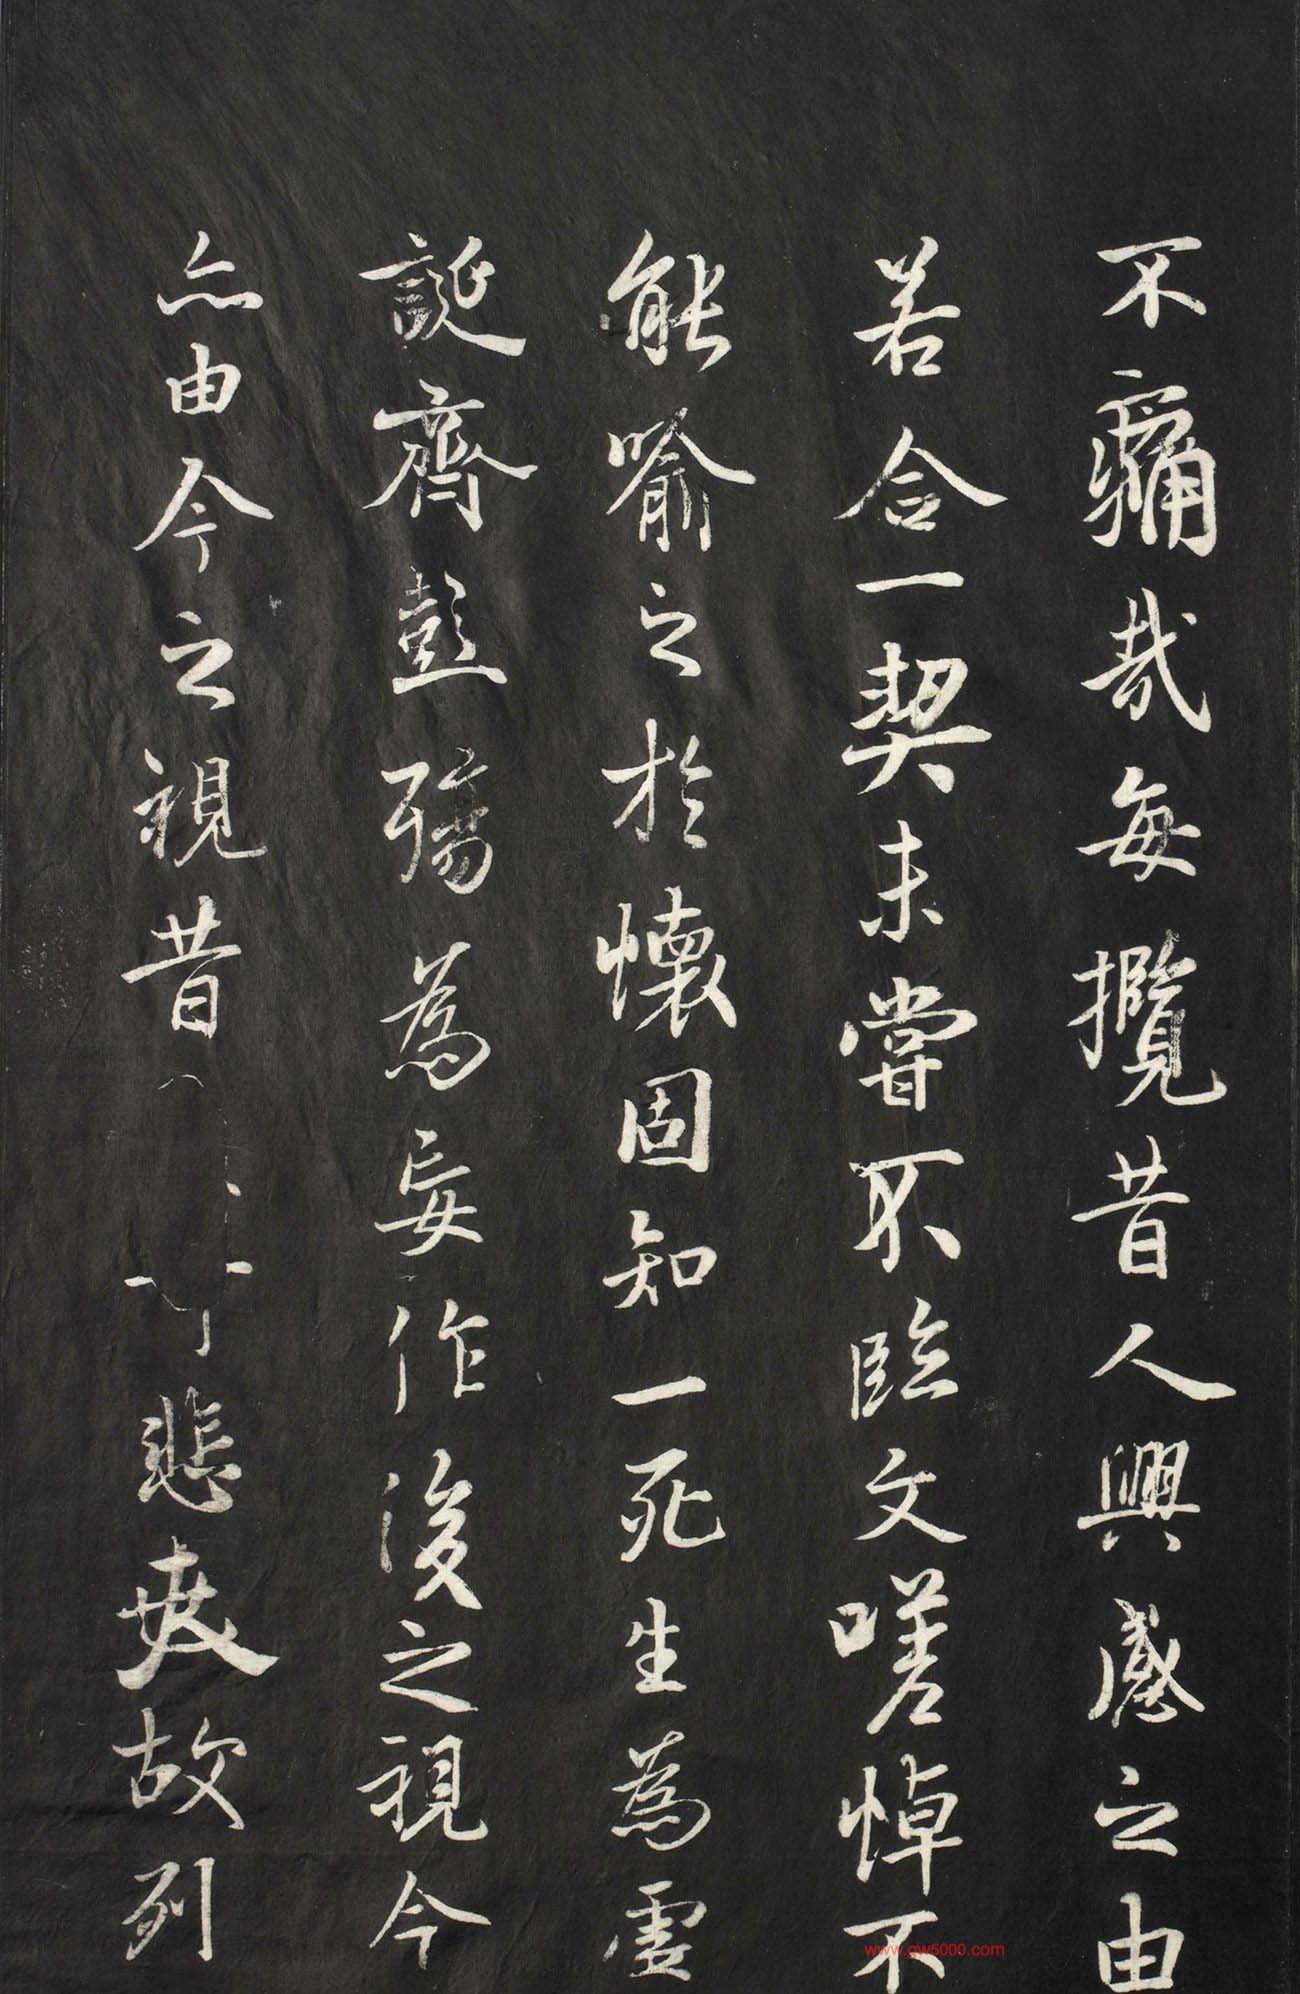 不痛哉每攬昔人興感之由
若合一契未嘗不臨文嗟悼不
能喻之於懷固知一死生為虛
誕齊彭殤為妄作後之視今
亦由今之視昔
悲夫故列
www.gw5000.com